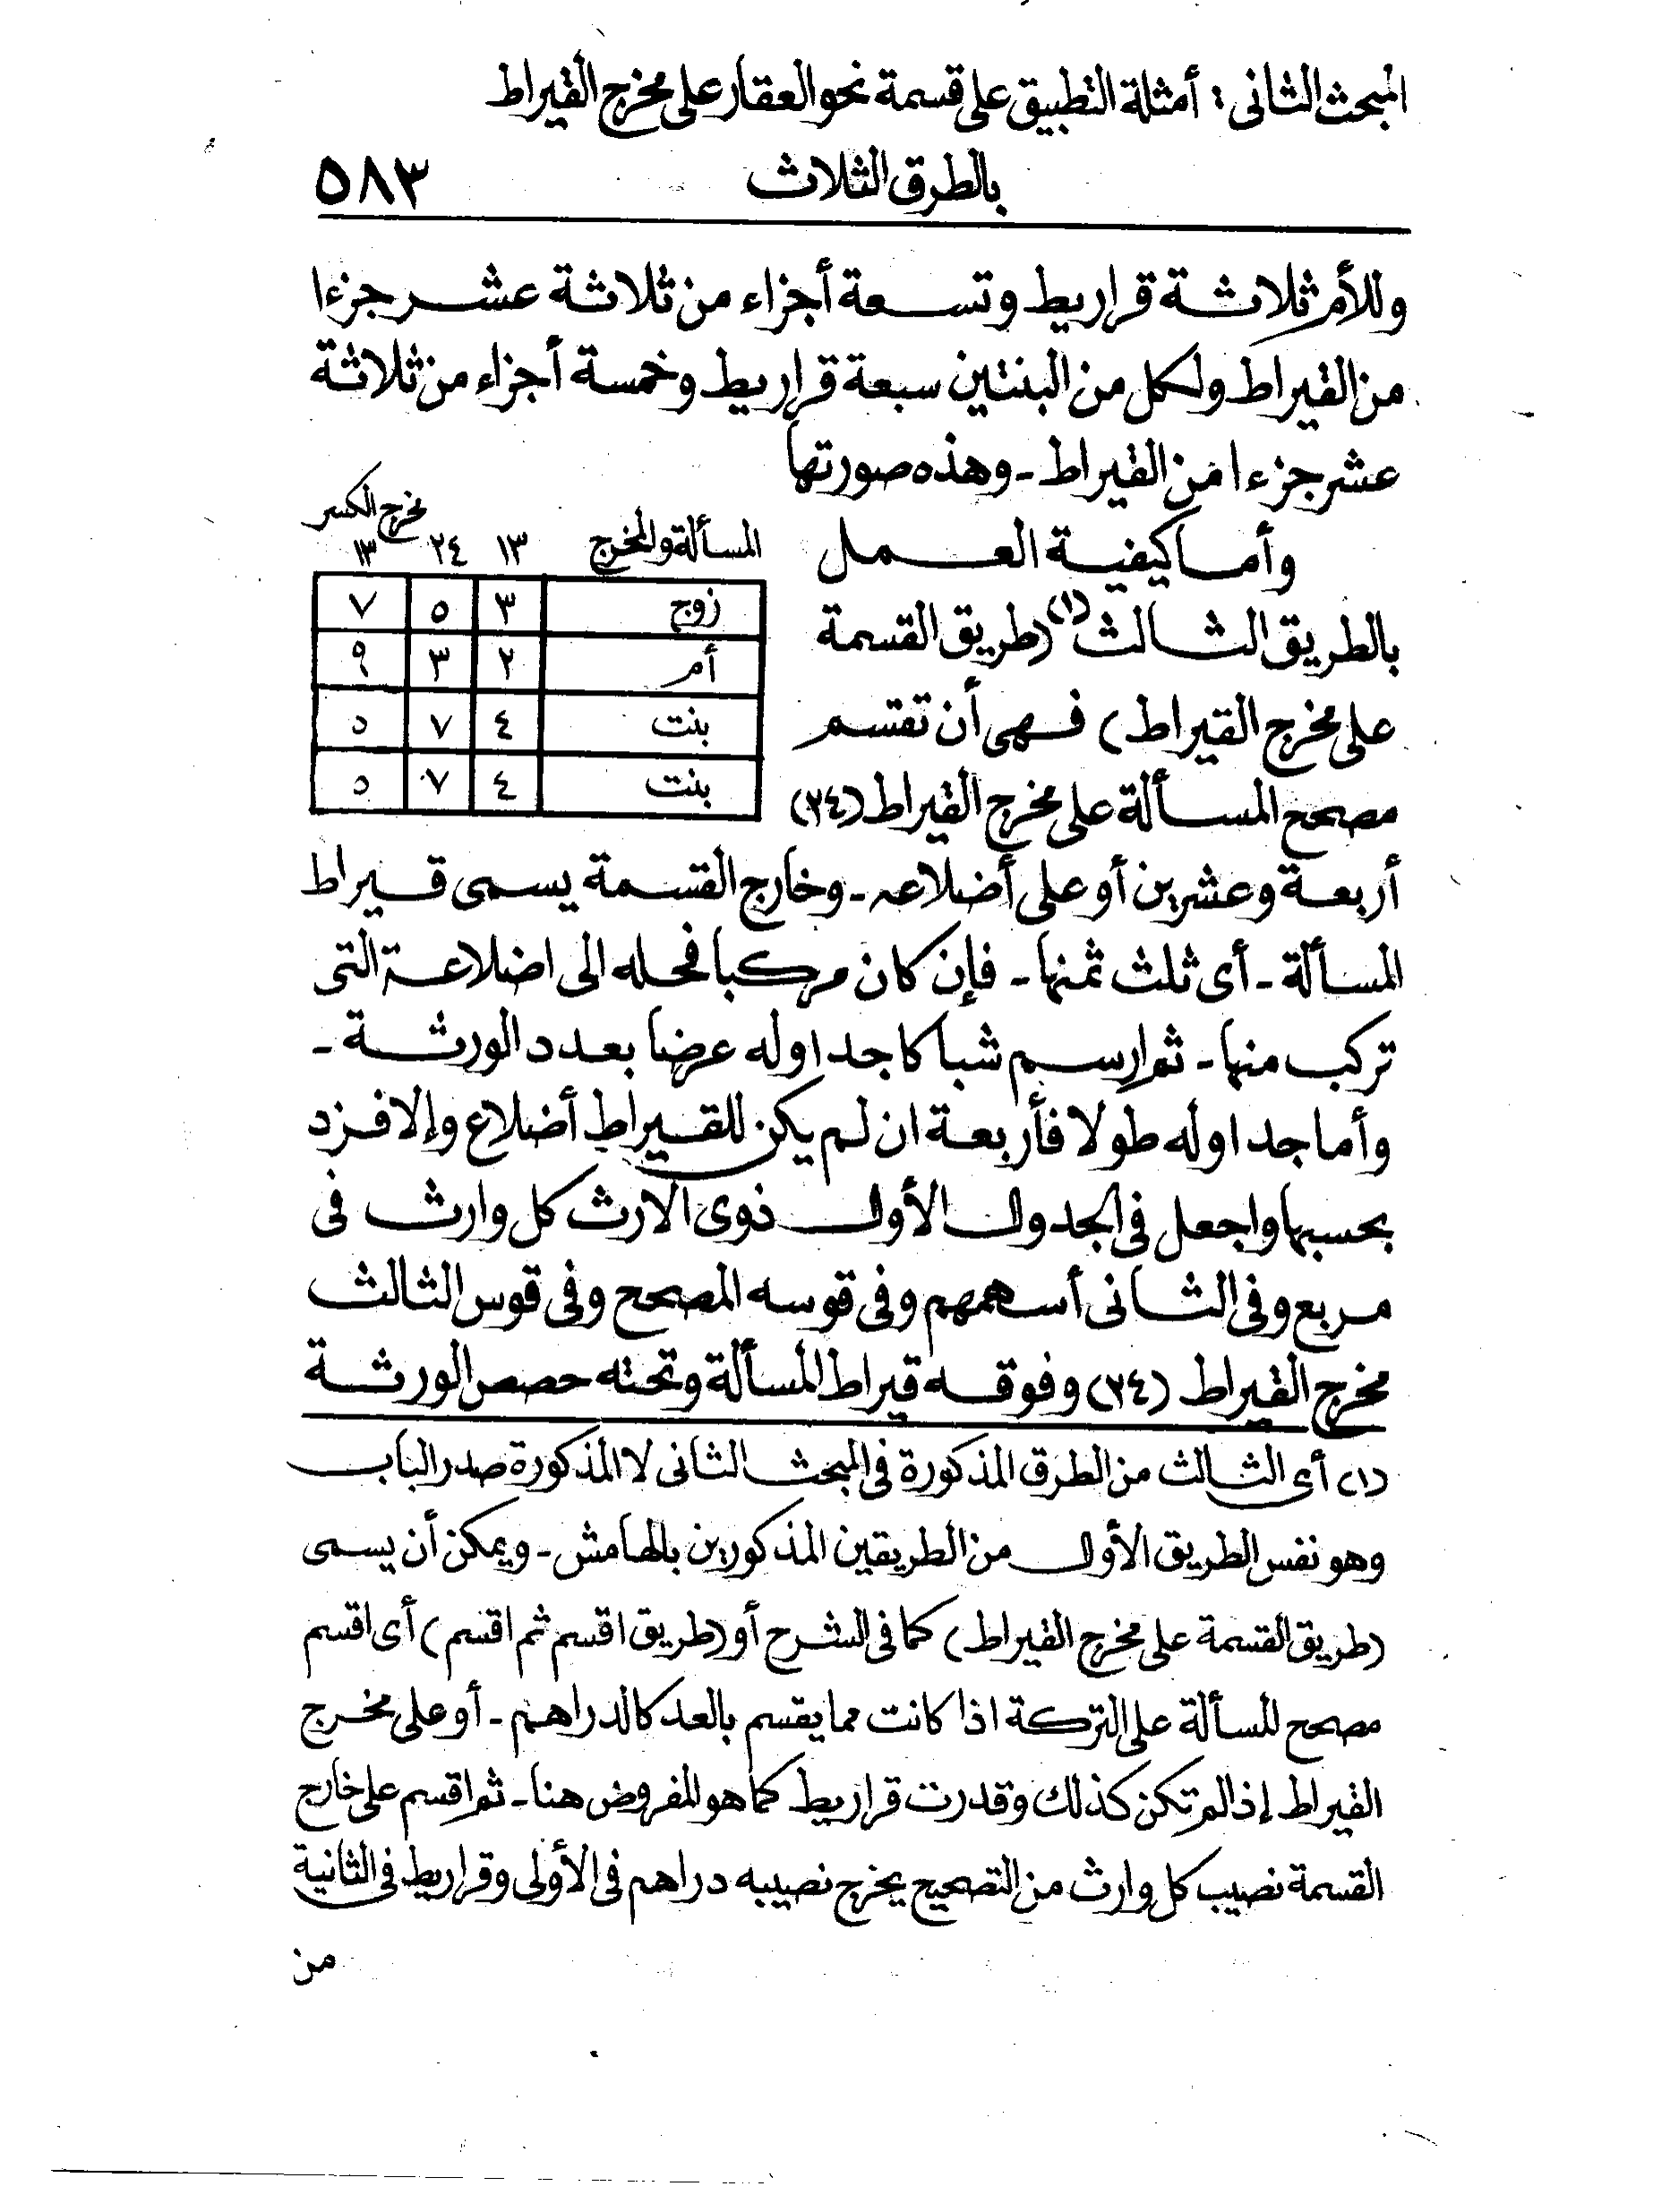 المبحث الثانى : أمثلة التطبيق على قسمة نحو العقار على مخرج القيراط
بالطرق الثلاث ٥٨٣
وللأم ثلاثة قراريط وتسعة أجزاء من ثلاثة عشر جزءا
من القيراط ولكل من البنتين سبعة قراريط وخمسة أجزاء من ثلاثة
عشر جزءا من القيراط - وهذه صورتها
وأما كيفية العمل
بالطريق الثالث (١) (طريق القسمة
على مخرج القيراط) فهى أن تقسم
مصحح المسألة على مخرج القيراط (٢٤)
مخرج الكسر
المسألة والمخرج ١٣ ٢٤ ١٣
زوج ٣ ٥ ٧
أم ٢ ٣ ٩
بنت ٤ ٧ ٥
بنت ٤ ٧ ٥
أربعة وعشرين أو على أضلاعه - وخارج القسمة يسمى قيراط
المسألة - أى ثلث ثمنها - فإن كان مركبا فحله الى اضلاعه التى
تركب منها - ثم ارسم شباكا جداوله عرضا بعدد الورثة -
وأما جداوله طولا فأربعة ان لم يكن للقيراط أضلاع وإلا فزد
بحسبها واجعل فى الجدول الأول ذوى الارث كل وارث فى
مربع وفى الثانى أسهمهم وفى قوسه المصحح وفى قوس الثالث
مخرج القيراط (٢٤) وفوقه قيراط المسألة وتحته حصص الورثة
(١) أى الثالث من الطرق المذكورة فى المبحث الثانى لا المذكورة صدر الباب
وهو نفس الطريق الأول من الطريقين المذكورين بالهامش - ويمكن أن يسمى
(طريق القسمة على مخرج القيراط) كما فى الشرح أو (طريق اقسم ثم اقسم) أى اقسم
مصحح المسألة على التركة اذا كانت مما يقسم بالعد كالدراهم - أو على مخرج
القيراط إذا لم تكن كذلك وقدرت قراريط كما هو المفروض هنا - ثم اقسم على خارج
القسمة نصيب كل وارث من التصحيح يخرج نصيبه دراهم فى الأولى وقراريط فى الثانية
من